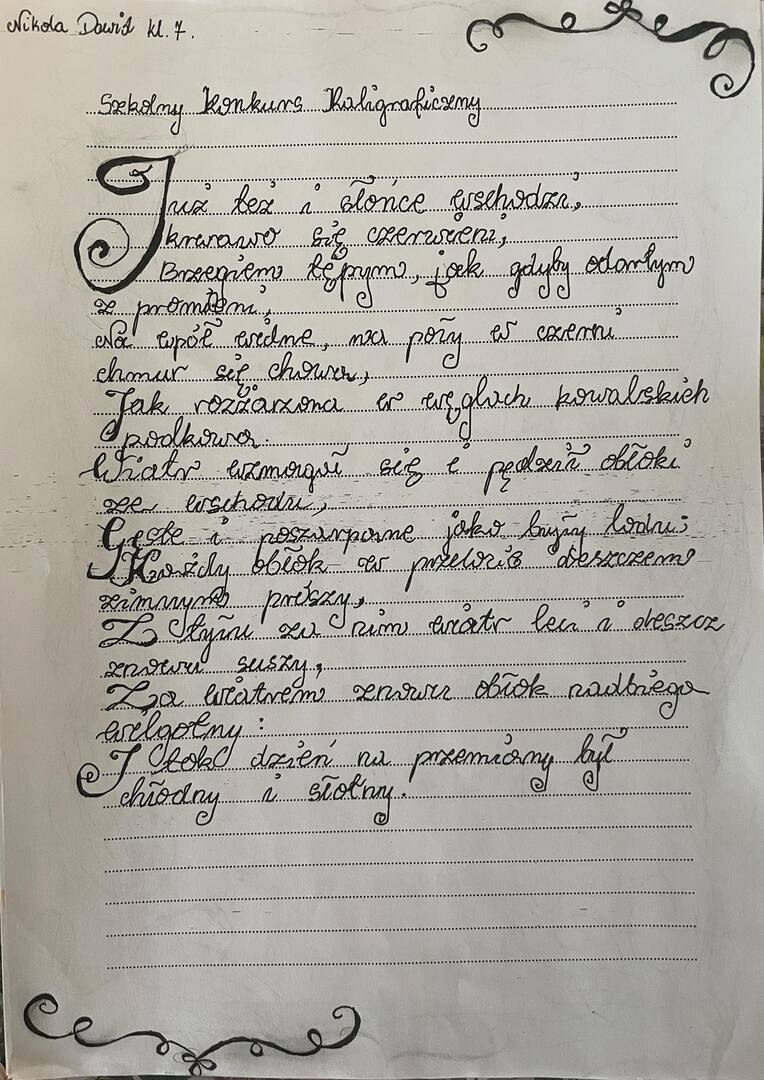 Nikola Dawid kl. 7.
Szkolny Konkurs Kaligraficzny
Już też i słońce wschodzi,
krwawo się czerwieni,
Brzegiem tępym, jak gdyby odartym
z promieni,
Na wpół widne, na poły w czerni
chmur się chowa,
Jak rozżarzona w węglach kowalskich
podkowa.
Wiatr wzmagał się i pędził obłoki
ze wschodu,
Gęste i poszarpane jako bryły lodu;
Każdy obłok w przelocie deszczem
zimnym prószy,
Z tyłu za nim wiatr leci i deszcz
znowu suszy,
Za wiatrem znowu obłok nadbiega
wilgotny:
I tak dzień na przemiany był
chłodny i słotny.